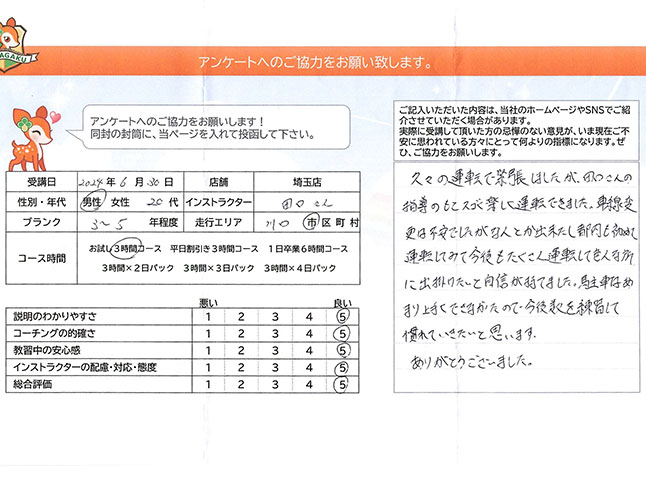 AGAKU
アンケートへのご協力をお願い致します。
アンケートへのご協力をお願いします！
同封の封筒に、当ページを入れて投函して下さい。
受講日 2024年 6月 30日 店舗 埼玉店
性別・年代 男性 女性 20代 インストラクター 田口さん
ブランク 3〜5 年程度 走行エリア 川口 市区町村
コース時間 お試し3時間コース 平日割引き3時間コース 1日卒業6時間コース
3時間×2日パック 3時間×3日パック 3時間×4日パック
悪い 良い
説明のわかりやすさ 1 2 3 4 5
コーチングの的確さ 1 2 3 4 5
教習中の安心感 1 2 3 4 5
インストラクターの配慮・対応・態度 1 2 3 4 5
総合評価 1 2 3 4 5
ご記入いただいた内容は、当社のホームページやSNSでご紹
介させていただく場合があります。
実際に受講して頂いた方の忌憚のない意見が、いま現在ご不
安に思われている方々にとって何よりの指標になります。ぜ
ひ、ご協力をお願いします。
久々の運転で緊張しましたが、田口さんの
指導のもとスゴく楽しく運転できました。車線変
更は不安でしたがなんとか出来たし都内も初めて
運転してみて今後もたくさん運転して色んな所
に出掛けたいと自信が持てました。駐車はあ
まり上手くできなかたので今後を練習して
慣れていきたいと思います。
ありがとうございました。